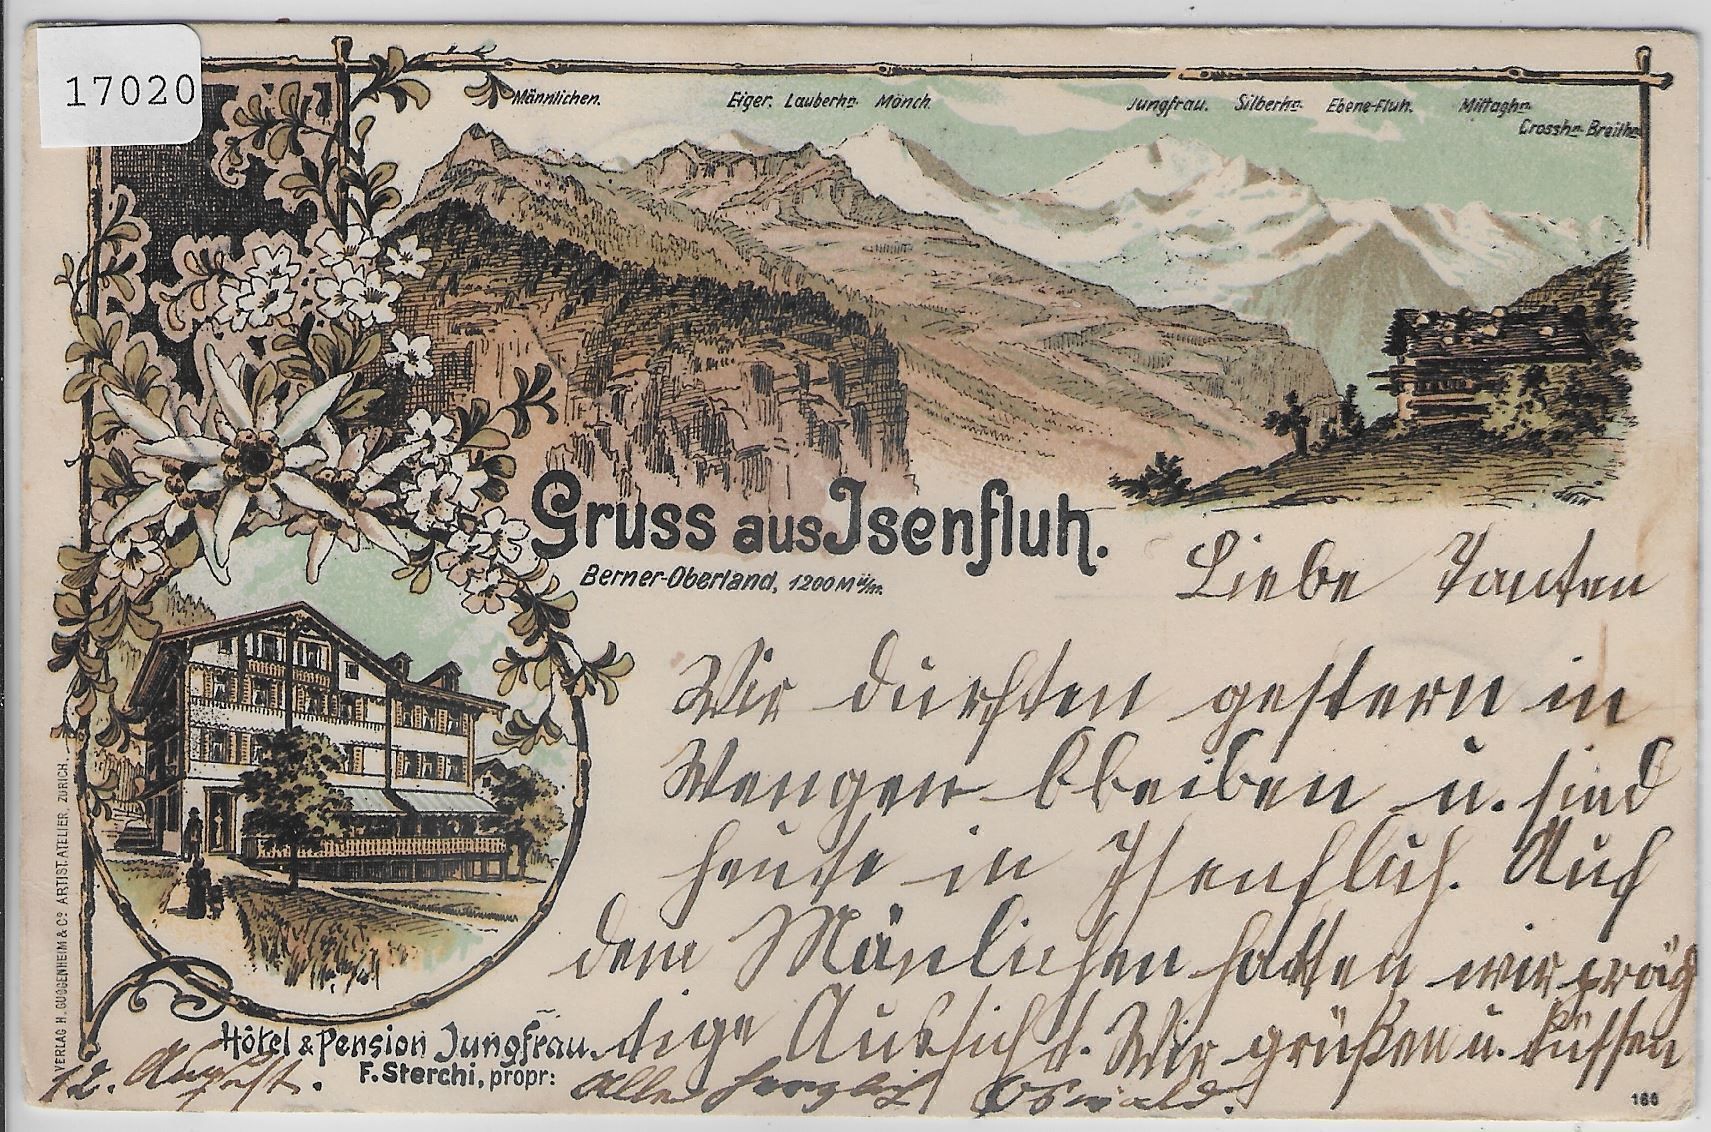 17020
Männlichen. Eiger. Lauberhn. Mönch. Jungfrau. Silberhn. Ebene-Fluh. Mittaghn.
Grosshn. Breithn.
Gruss aus Isenfluh.
Berner-Oberland, 1200 M ü/M.
Liebe Tanten
Wir durften gestern in
Wengen bleiben u. sind
heute in Isenfluh. Auf
dem Mänlichen hatten wir präch
tige Aussicht. Wir grüßen u. küssen
Alle herzlich Oswald.
12. August.
Hôtel & Pension Jungfrau.
F. Sterchi, propr:
VERLAG H. GUGGENHEIM & Co. ARTIST. ATELIER, ZÜRICH.
166